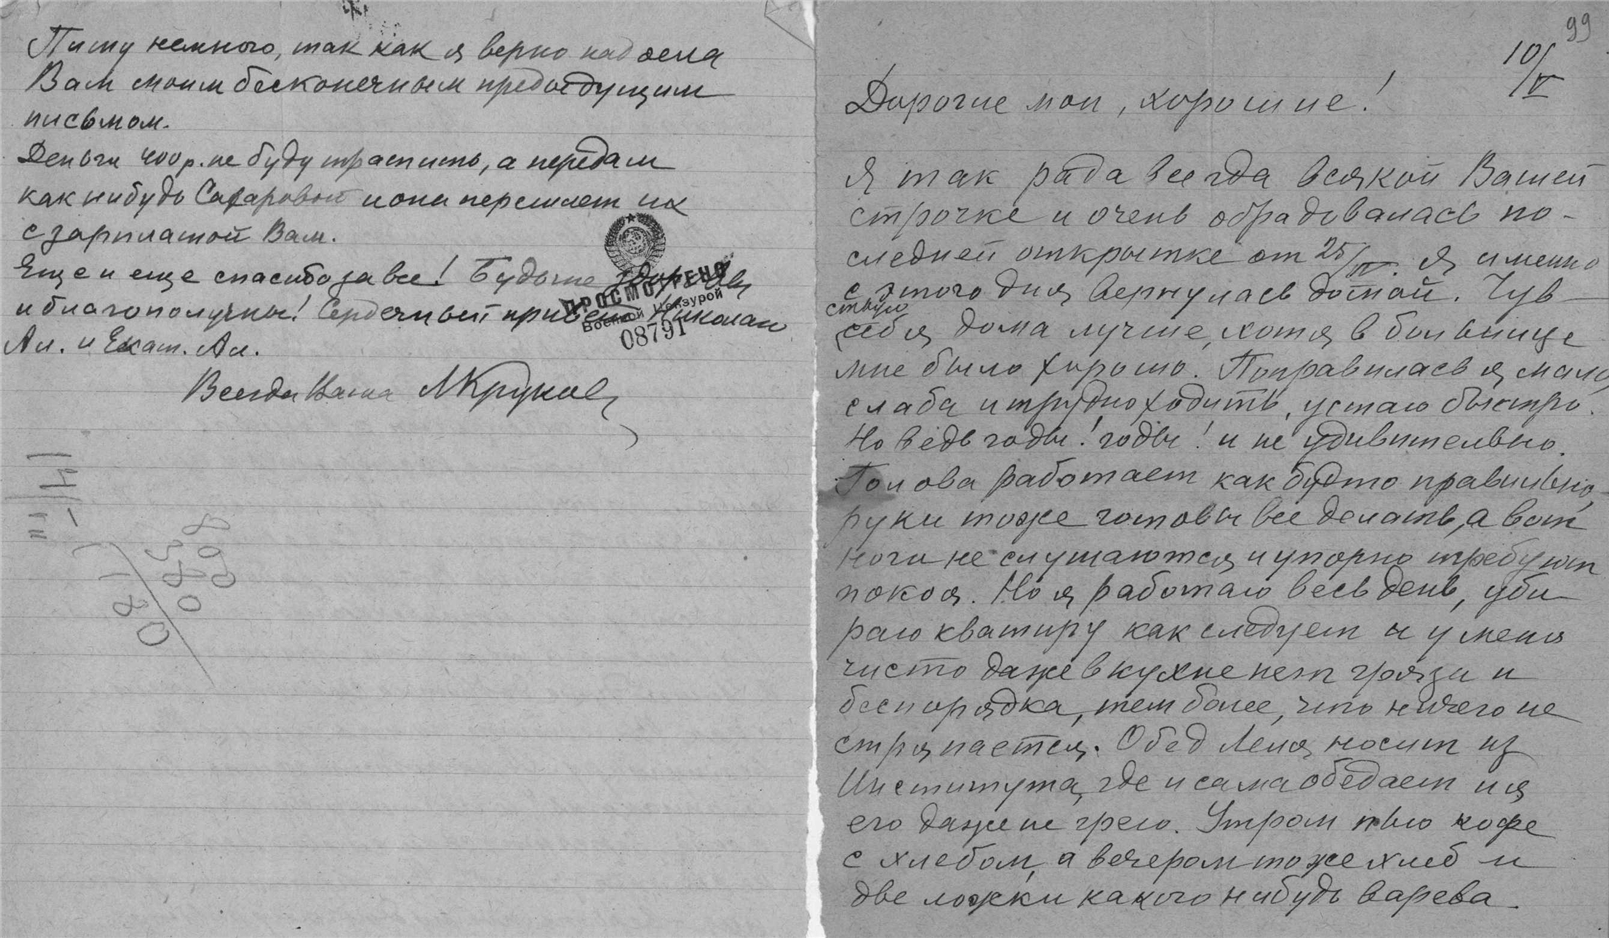 Пишу немного, так как я верно надоела
Вам моим бесконечным предыдущим
письмом.
Деньги 400 р. не буду тратить, а передам
как нибудь Сахаровой и она перешлет их
с зарплатой Вам.
Еще и еще спасибо за все! Будьте здоровы
и благополучны! Сердечный привет Николаю
Ал. и Екат. Ал.
Всегда Ваша
ПРОСМОТРЕНО
Военной Цензурой
08791
99
10/V
Дорогие мои, хорошие!
Я так рада всегда всякой Вашей
строчке и очень обрадовалась по-
следней открытке от 25/IV. Я именно
с этого дня вернулась домой. Чув-
ствую
себя дома лучше, хотя в больнице
мне было хорошо. Поправилась я мало,
слаба и трудно ходить, устаю быстро.
Но ведь годы! годы! и не удивительно.
Голова работает как будто правильно,
руки тоже готовы все делать, а вот
ноги не слушаются и упорно требуют
покоя. Но я работаю весь день, уби-
раю квартиру как следует и у меня
чисто даже в кухне нет грязи и
беспорядка, тем более, что ничего не
стряпается. Обед Леля носит из
Института, где и сама обедает и я
его даже не грею. Утром пью кофе
с хлебом, а вечером тоже хлеб и
две ложки какого нибудь варева.